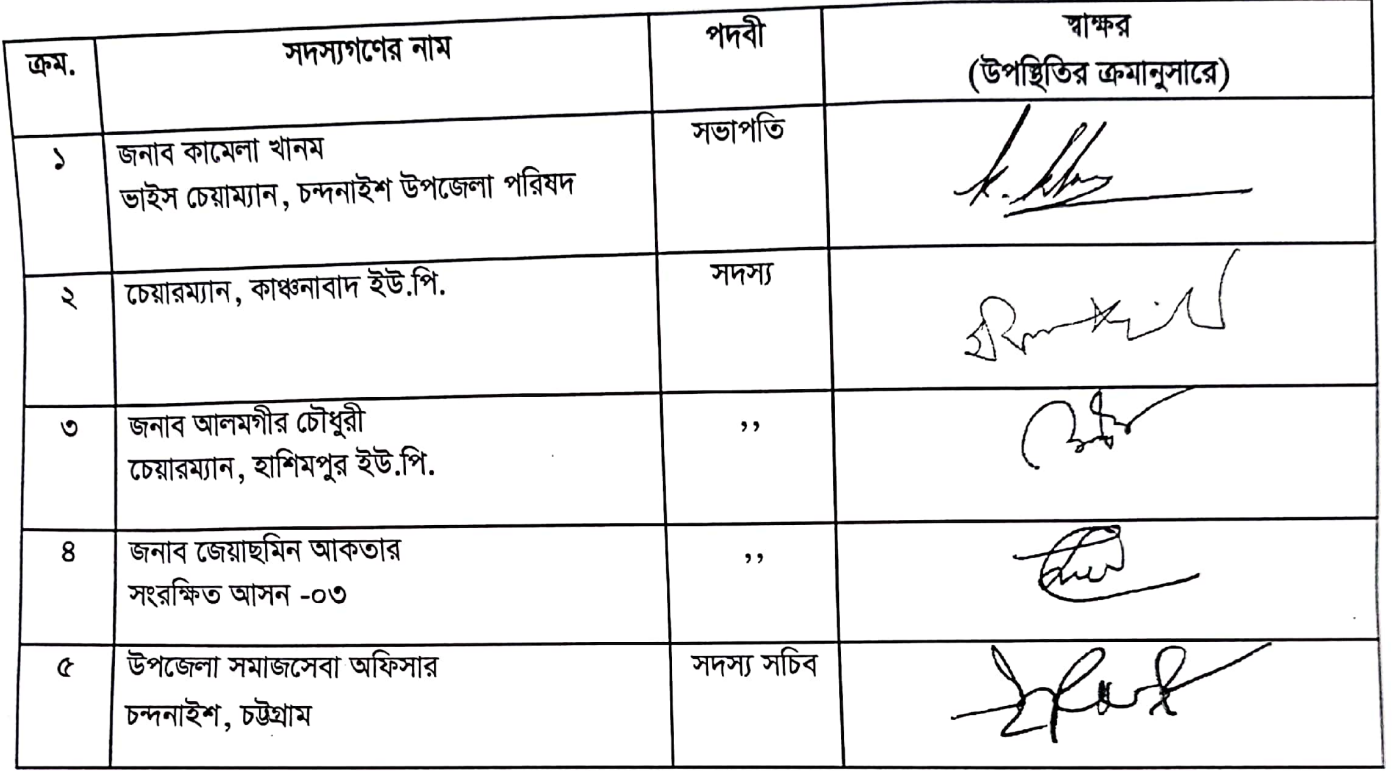 ক্রম. সদস্যগণের নাম পদবী স্বাক্ষর
(উপস্থিতির ক্রমানুসারে)
১ জনাব কামেলা খানম সভাপতি
ভাইস চেয়াম্যান, চন্দনাইশ উপজেলা পরিষদ
২ চেয়ারম্যান, কাঞ্চনাবাদ ইউ.পি. সদস্য
৩ জনাব আলমগীর চৌধুরী ,,
চেয়ারম্যান, হাশিমপুর ইউ.পি.
৪ জনাব জেয়াছমিন আকতার ,,
সংরক্ষিত আসন -০৩
৫ উপজেলা সমাজসেবা অফিসার সদস্য সচিব
চন্দনাইশ, চট্টগ্রাম